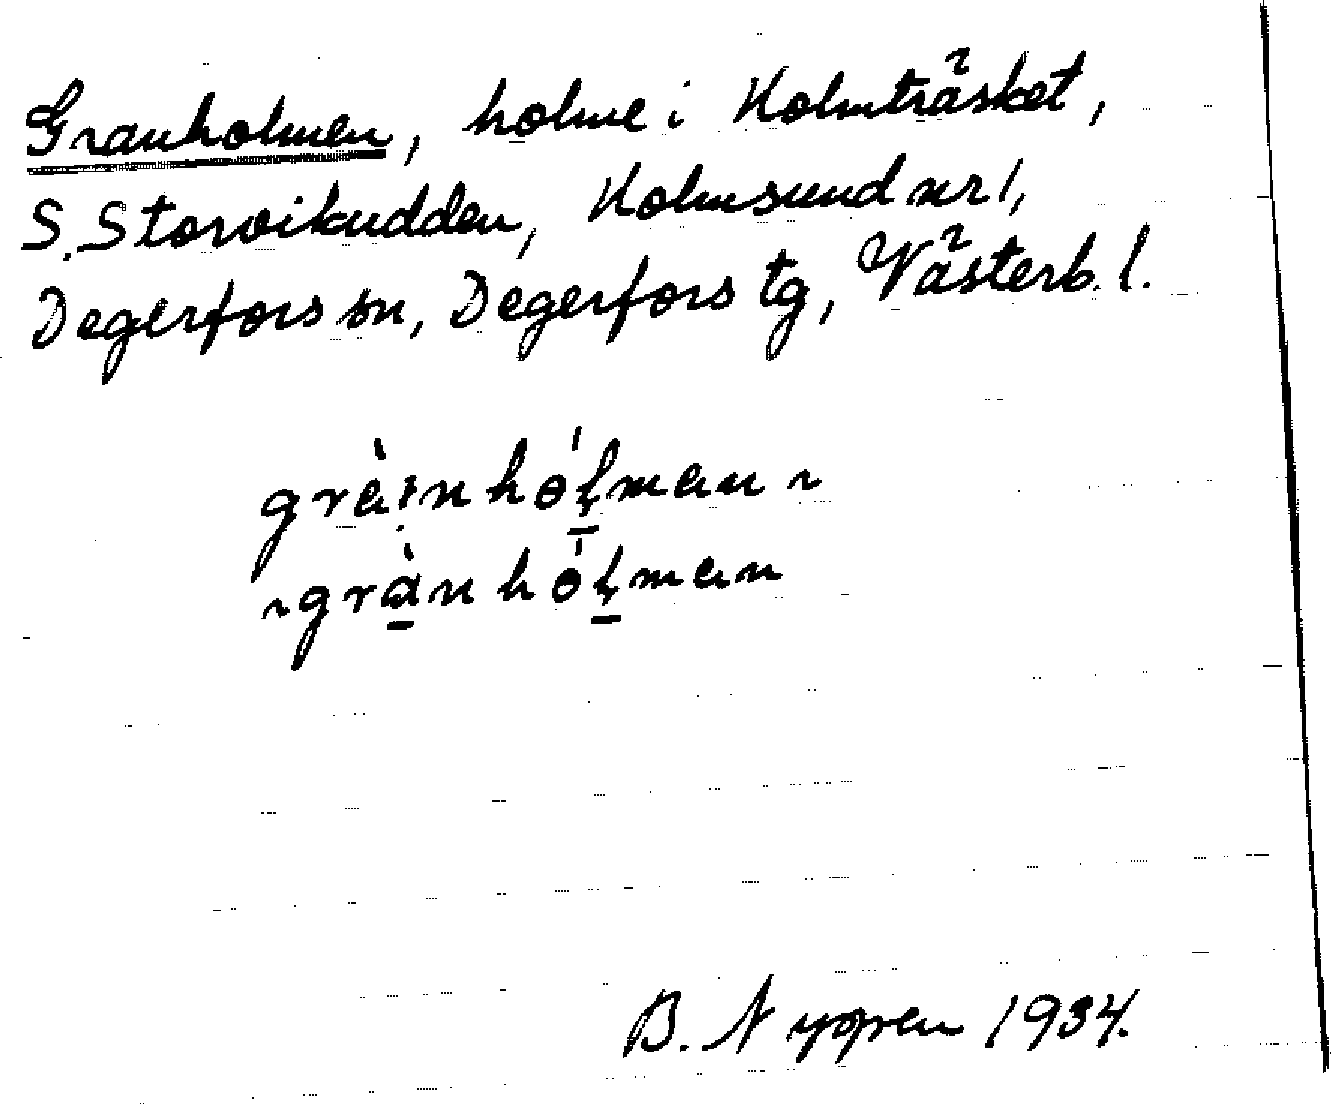 Granholmen, holme i Holmträsket,
S. Storvikudden, Holmsund nr 1,
Degerfors sn, Degerfors tg, Västerb. l.
grà:nhóḻman ~
~gràṉhóḻman
B. Nygren 1934.